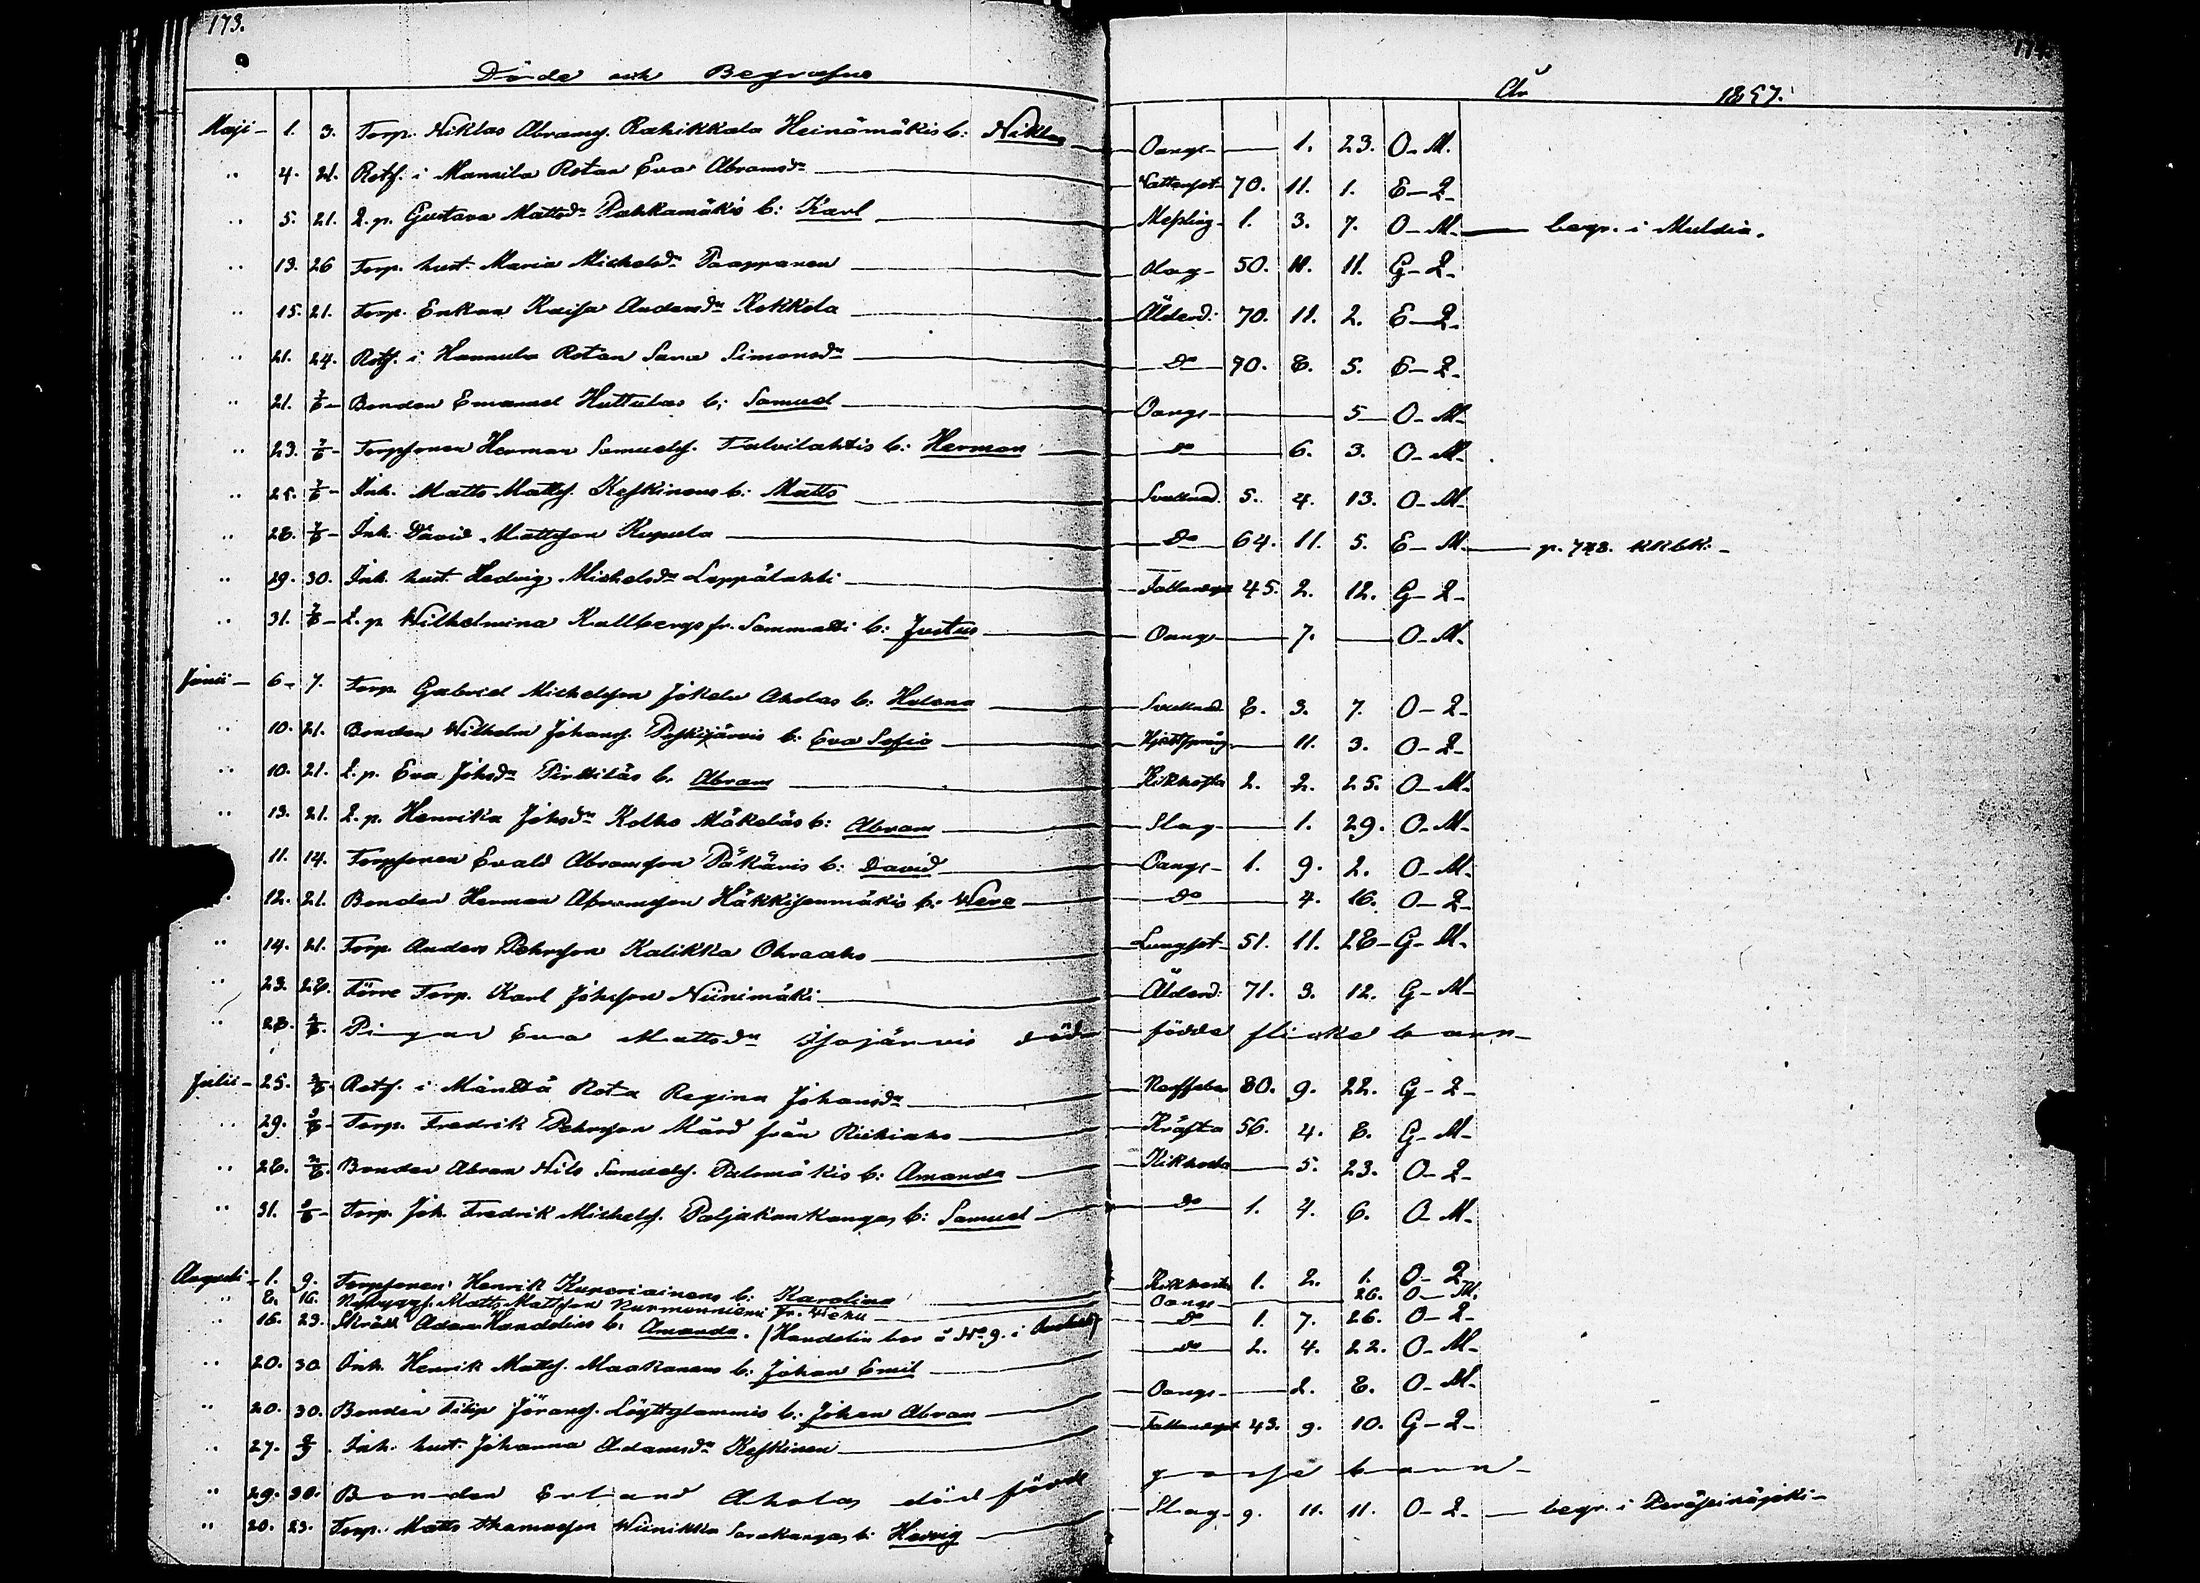 173.
Döde och Begrafne
År 1857.
Maji – 1. 3. Torp. Niklas Abramss. Rahikkala Heinämäkis b: Niklas — Oange — 1. 23. O – M.
" 4. 21. Rotf. i Mannila Rotan Eva Abramsdr — Vattusot – 70. 11. 1. E – Q –
" 5. 21. L. p. Gustava Mattsdr Pahkamäkis b: Karl — Messling – 1. 3. 7. O – M. — begr. i Muldia.
" 13. 26 Torp. hust. Maria Michelsdr Paappanen — Slag – 50. 11. 11. G – Q –
" 15. 21. Torp. Enkan Kaisa Andersdr Kokkola — Ålderd: 70. 11. 2. E – Q –
" 21. 24. Rotf. i Hannula Rotan Sara Simonsdr — do 70. 8. 5. E – Q –
" 21. 7/6 – Bonden Emanuel Huttulas b; Samuel — Oange — 5 – O – M –
" 23. 7/6 – Torpsonen Herman Samuelss. Talvilahtis b: Herman — do 6. 3. O – M –
" 25. 7/6 – Inh. Matts Mattss. Keskinens b: Matts — Svullnad. 5. 4. 13. O – M –
" 28. 7/6 – Inh. David Mattsson — do 64. 11. 5. E – M — p. 728. KKbk. –
" 29. 30. Inh. hust. Hedvig Michelsdr Leppälahti — 45. 2. 12. G – Q –
" 31. 7/6 – L. p. Wilhelmina Kallbergs fr. Sammatti b: Justus — Oange — 7. — O – M.
Junii – 6 – 7. Torp. Gabriel Michelsson Jokela Aholas b: Helena — Svullnad 8. 3. 7. O – Q –
" 10. 21. Bonden Wilhelm Johanss. Poskijärvis b. Eva Sofia — 11. 3. O – Q –
" 10. 21. L. p. Eva Johsdr Pirttiläs b. Abram — Kikhosta 2. 2. 25. O – M.
" 13. 21. L. p. Henrika Johsdr Kolho Mäkeläs b: Abram — Slag — 1. 29. O – M –
11. 14. Torpsonen Evald Abramsson b: David — Oange – 1. 9. 2. O – M –
" 12. 21. Bonden Herman Abramsson Häkkisenmäkis b: Wera — do — 4. 16. O – Q –
" 14. 21. Torp Anders Pehrsson Kalikka Ohraaho — Lungsot – 51. 11. 28 – G – M –
" 23. 28. Förre Torp. Karl Johsson Niinimäki — Ålderd: 71. 3. 12. G – M –
" 28. Pigan Eva Mattsdr Isojärvis död – födde flicke barn –
Julii – 25. Rotf. i Mänttä Rota Regina Johansdr — 80. 9. 22. G – Q –
" 29. Torp. Fredrik Pehrsson Mård från Riihiaho — Kräfta 56. 4. 8. G – M –
" 28. Bonden Abram Nils Samuelss. Palomäkis b: Amanda — Kikhosta — 5. 23. O – Q –
" 31. Torp. Joh. Fredrik Michelss. Paljakankangas b: Samuel — do 1. 4. 6. O – M –
Augusti – 1. 9. Torpsonen Henrik b: Karolina — Kikhosta 1. 2. 1. O – Q
" 8. 16. Nybyggs. Matts Mattsson Nurmenniemi fr. Wehu — Oange — 26. O – M.
" 16. 23. Skrädd. Adam Handolins b. Amanda. (Handolin bor å No 9. i — do 1. 7. 26. O – Q –
" 20. 30 Inh. Henrik Mattss. Maakanens b: Johan Emil — do 2. 4. 22. O – M –
" 20. 30. Bonden Filip Jöranss. Löyttylammis b: Johan Abram — Oange — 2. 8. O – M –
" 27. Inh. hust. Johanna Adamsdr Keskinen — 43. 9. 10. G – Q –
" 29. 30. Bonden Erland Aholas död född gosse barn –
" 20. 23. Torp. Matts Thomasson Wiinikka Sarakangas b: Hedvig — Slag – 9. 11. 11. O – Q – — begr. i Peräseinäjoki –